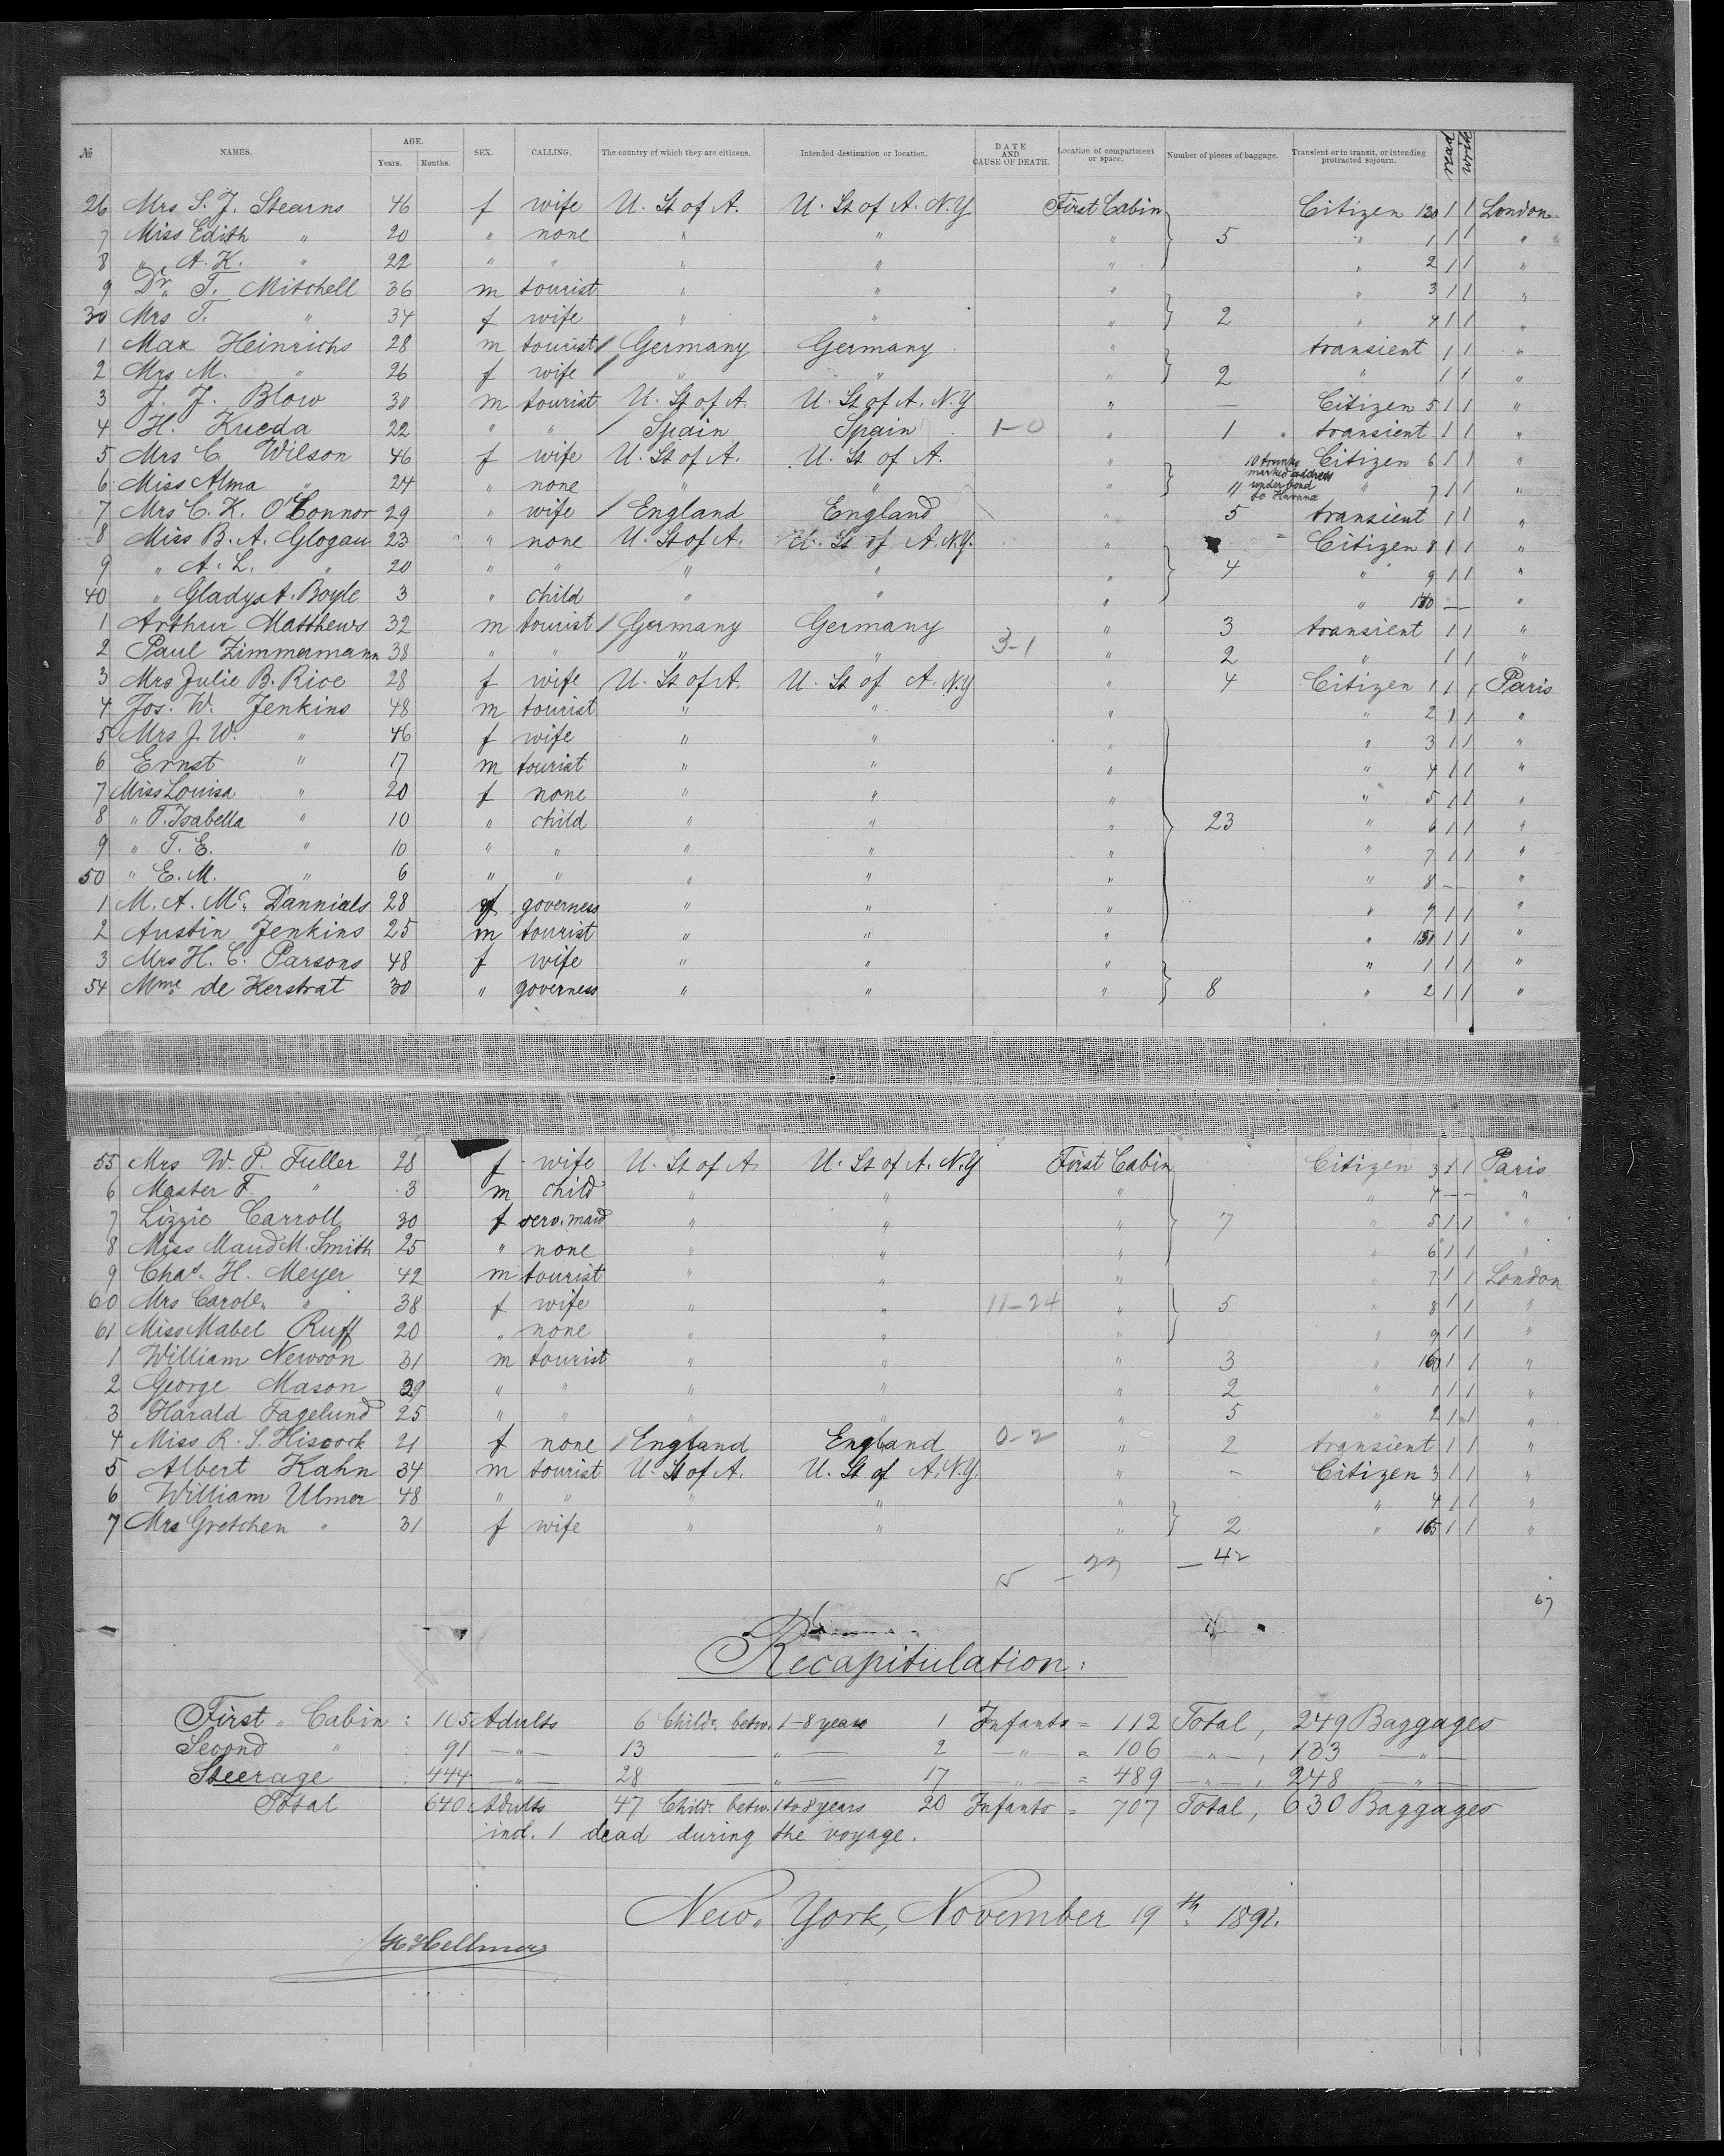 № NAMES. AGE. Years. Months. SEX. CALLING. The country of which they are citizens. Intended destination or location. DATE AND CAUSE OF DEATH. Location of compartment or space. Number of pieces of baggage. Transient or in transit, or intending protracted sojourn. read write
26 Mrs S. J. Stearns 46 f wife U. St of A. U. St of A. N.Y. First Cabin Citizen 130 1 1 London
7 Miss Edith " 20 " none " " " 5 " 1 1 1 "
8 " A. K. " 22 " " " " " " 2 1 1 "
9 Dr. T. Mitchell 36 m tourist " " " " 3 1 1 "
30 Mrs T. " 34 f wife " " " 2 " 4 1 1 "
1 Max Heinrichs 28 m tourist / Germany Germany " transient 1 1 "
2 Mrs M. " 26 f wife / " " " 2 " 1 1 "
3 J. J. Blow 30 m tourist U. St of A. U. St of A. N.Y " — Citizen 5 1 1 "
4 H. Krueda 22 " " / Spain Spain 1-0 " 1 transient 1 1 "
5 Mrs C. Wilson 46 f wife U. St of A. U. St of A. " 10 trunks marked address under bond to Havana Citizen 6 1 1 "
6 Miss Alma " 24 " none " " " 11 " 7 1 1 "
7 Mrs C. K. O'Connor 29 " wife / England England " 5 transient 1 1 "
8 Miss B. A. Glogau 23 " none U. St of A. U. St of A. N.Y. " Citizen 8 1 1 "
9 " A. L. " 20 " " " " " 4 " 9 1 1 "
40 " Gladys A. Boyle 3 " child " " " " 140 — — "
1 Arthur Matthews 32 m tourist / Germany Germany " 3 transient 1 1 "
2 Paul Zimmermann 38 " " " " 3-1 " 2 " 1 1 "
3 Mrs Julie B. Rice 28 f wife U. St of A. U. St of A. N.Y " 4 Citizen 1 1 1 Paris
4 Jos. W. Jenkins 48 m tourist " " " " 2 1 1 "
5 Mrs J. W. " 46 f wife " " " " 3 1 1 "
6 Ernst " 17 m tourist " " " " 4 1 1 "
7 Miss Louisa " 20 f none " " " " 5 1 1 "
8 " T. Isabella " 10 " child " " " 23 " 6 1 1 "
9 " T. E. " 10 " " " " " " 7 1 1 "
50 " E. M. " 6 " " " " " " 8 — "
1 M. A. Mc. Dannials 28 f governess " " " " 9 1 1 "
2 Austin Jenkins 25 m tourist " " " " 150 1 1 "
3 Mrs H. C. Parsons 48 f wife " " " " 1 1 1 "
54 Mme de Kerstrat 30 " governess " " " 8 " 2 1 1 "
55 Mrs W. P. Fuller 28 f wife U. St of A U. St of A. N.Y First Cabin Citizen 3 1 1 Paris
6 Master F. " 3 m child " " " " 4 — — "
7 Lizzie Carroll 30 f serv. maid " " " 7 " 5 1 1 "
8 Miss Maud M. Smith 25 " none " " " " 6 1 1 "
9 Chas. H. Meyer 42 m tourist " " " " 7 1 1 London
60 Mrs Carol. " 38 f wife " " 11-24 " 5 " 8 1 1 "
61 Miss Mabel Ruff 20 " none " " " " 9 1 1 "
1 William Newson 31 m tourist " " " 3 " 160 1 1 "
2 George Mason 29 " " " " " 2 " 1 1 1 "
3 Harald Fagelund 25 " " " " " 5 " 2 1 1 "
4 Miss R. S. Hiscock 21 f none / England England 0-2 " 2 transient 1 1 "
5 Albert Kahn 34 m tourist U. St of A. U. St of A. N.Y. " - Citizen 3 1 1 "
6 William Ulmer 48 " " " " " " 4 1 1 "
7 Mrs Gretchen " 31 f wife " " " 2 " 165 1 1 "
15 — 23 — 42
67
Recapitulation:
First " Cabin : 105 Adults 6 Childr. betw. 1-8 years 1 Infants = 112 Total, 249 Baggages
Second " : 91 —"— 13 — " — 2 —"— = 106 —"—, 133 —"—
Steerage : 444 —"— 28 — " — 17 —"— = 489 —"—, 248 —"—
Total 640 Adults 47 Childr. betw. 1 to 8 years 20 Infants = 707 Total, 630 Baggages
incl. 1 dead during the voyage.
New York, November 19th 1892.
H Hellmers